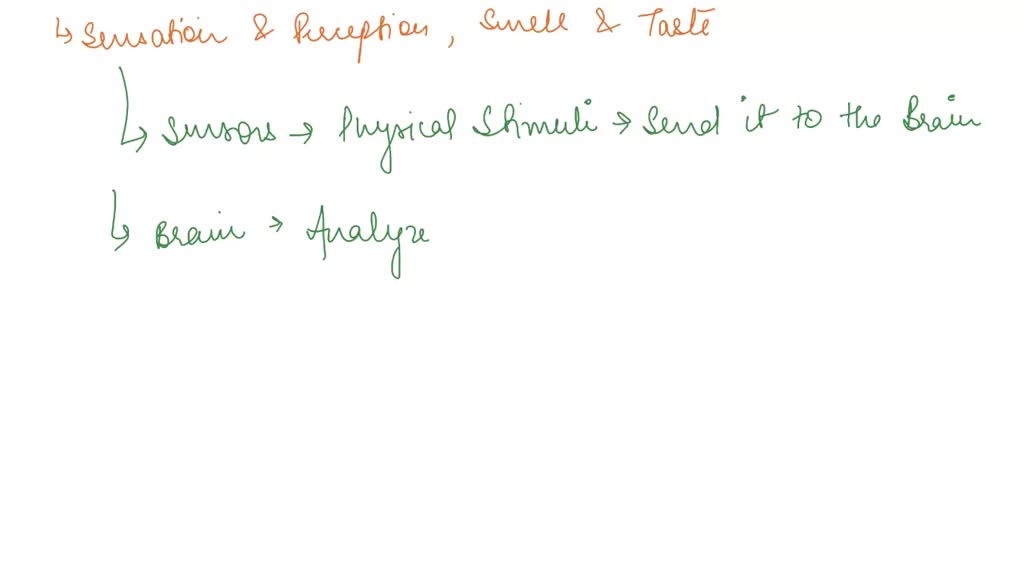 ↳ Sensation & Perception, Smell & Taste
↳ Sensors → Physical Stimuli → Send it to the Brain
↳ Brain → Analyze